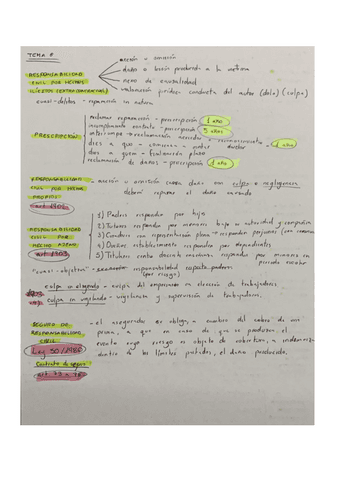 TEMA 8
acción u omisión
RESPONSABILIDAD
CIVIL POR HECHOS
ILÍCITOS (EXTRACONTRACTUAL)
daño o lesión producida a la víctima
nexo de causalidad
valoración jurídica conducta del autor (dolo) (culpa)
cuasi-delitos - reparación
PRESCRIPCIÓN
reclamar reparación - prescripción 1 año
incumplimiento contrato - prescripción 5 años
interrumpe → reclamación
dies a quo - comienza
dies a quem - finalización plazo
1 año
reclamación de daños - prescripción 1 año
RESPONSABILIDAD
CIVIL POR HECHO
PROPIO
art 1902
- acción u omisión causa daño con culpa o negligencia
deberá reparar el daño causado
RESPONSABILIDAD
CIVIL POR
HECHO AJENO
art 1903
1) Padres responden por hijo
2) Tutores responden por menores bajo su autoridad y compañía
3) Curadores con representación plena → responden perjuicios
4) Dueños establecimiento responden por dependientes
5) Titulares centro docente responden por menores en
periodo escolar
"cuasi-objetiva" - responsabilidad respecto padres
(por riesgo)
culpa in eligendo - culpa del empresario en elección de trabajadores
culpa in vigilando - vigilancia y supervisión de trabajadores.
SEGURO DE
RESPONSABILIDAD
CIVIL
Ley 50/1980
Contrato de seguro
art 73 - 76
- el asegurador se obliga, a cambio del cobro de una
prima, a que en caso de que se produzca el
evento cuyo riesgo es objeto de cobertura, a indemnizar
dentro de los límites pactados, el daño producido.